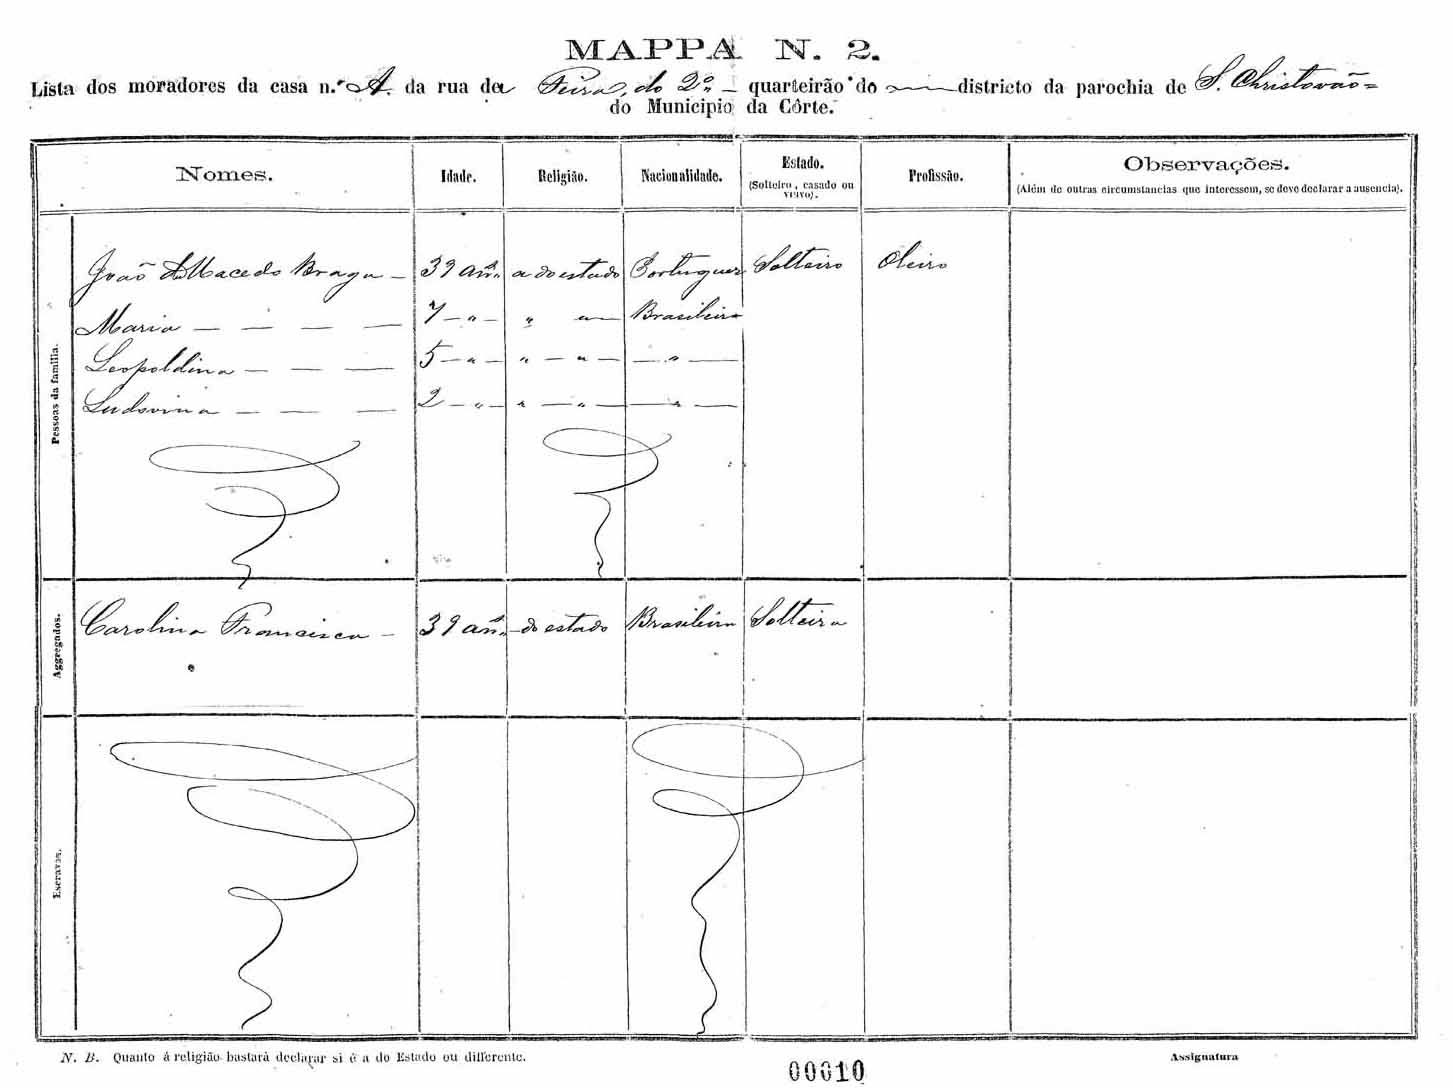 MAPPA N. 2.
Lista dos moradores da casa n.º A. da rua da Feira, do 2º quarteirão do — districto da parochia de S. Christovão
do Municipio da Côrte.
Nomes. Idade. Religião. Nacionalidade. Estado. (Solteiro, casado ou viuvo). Profissão. Observações. (Além de outras circumstancias que interessem, se deve declarar a ausencia).
Pessoas da familia.
João de Macedo Braga — 39 ans a do estado Portuguez Solteiro Oleiro
Maria — — — — 7 — " — " " — Brasileira
Leopoldina — — — 5 — " — " — " — — " —
Ludovina — — — 2 — " — " — " — — " —
Aggregados.
Carolina Francisca — 39 ans — do estado Brasileira Solteira
Escravos.
N. B. Quanto á religião bastará declarar si é a do Estado ou differente.
Assignatura
00010